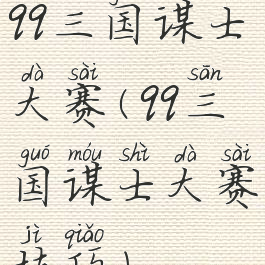 99三国谋士
dà sài sān
大赛(99三
guó móu shì dà sài
国谋士大赛
jì qiǎo
技巧)